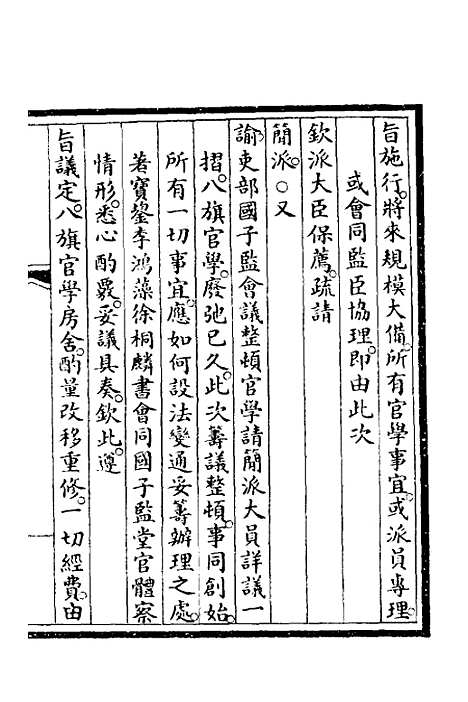 旨施行。將來規模大備。所有官學事宜。或派員專理。
或會同監臣協理。即由此次
欽派大臣保薦。疏請
簡派。○又
諭吏部國子監會議整頓官學請簡派大員詳議一
摺。八旗官學。廢弛已久。此次籌議整頓。事同創始。
所有一切事宜。應如何設法變通妥籌辦理之處。
著寶鋆李鴻藻徐桐麟書會同國子監堂官體察
情形。悉心酌覈。妥議具奏。欽此。遵
旨議定。八旗官學房舍。酌量改移重修。一切經費。由